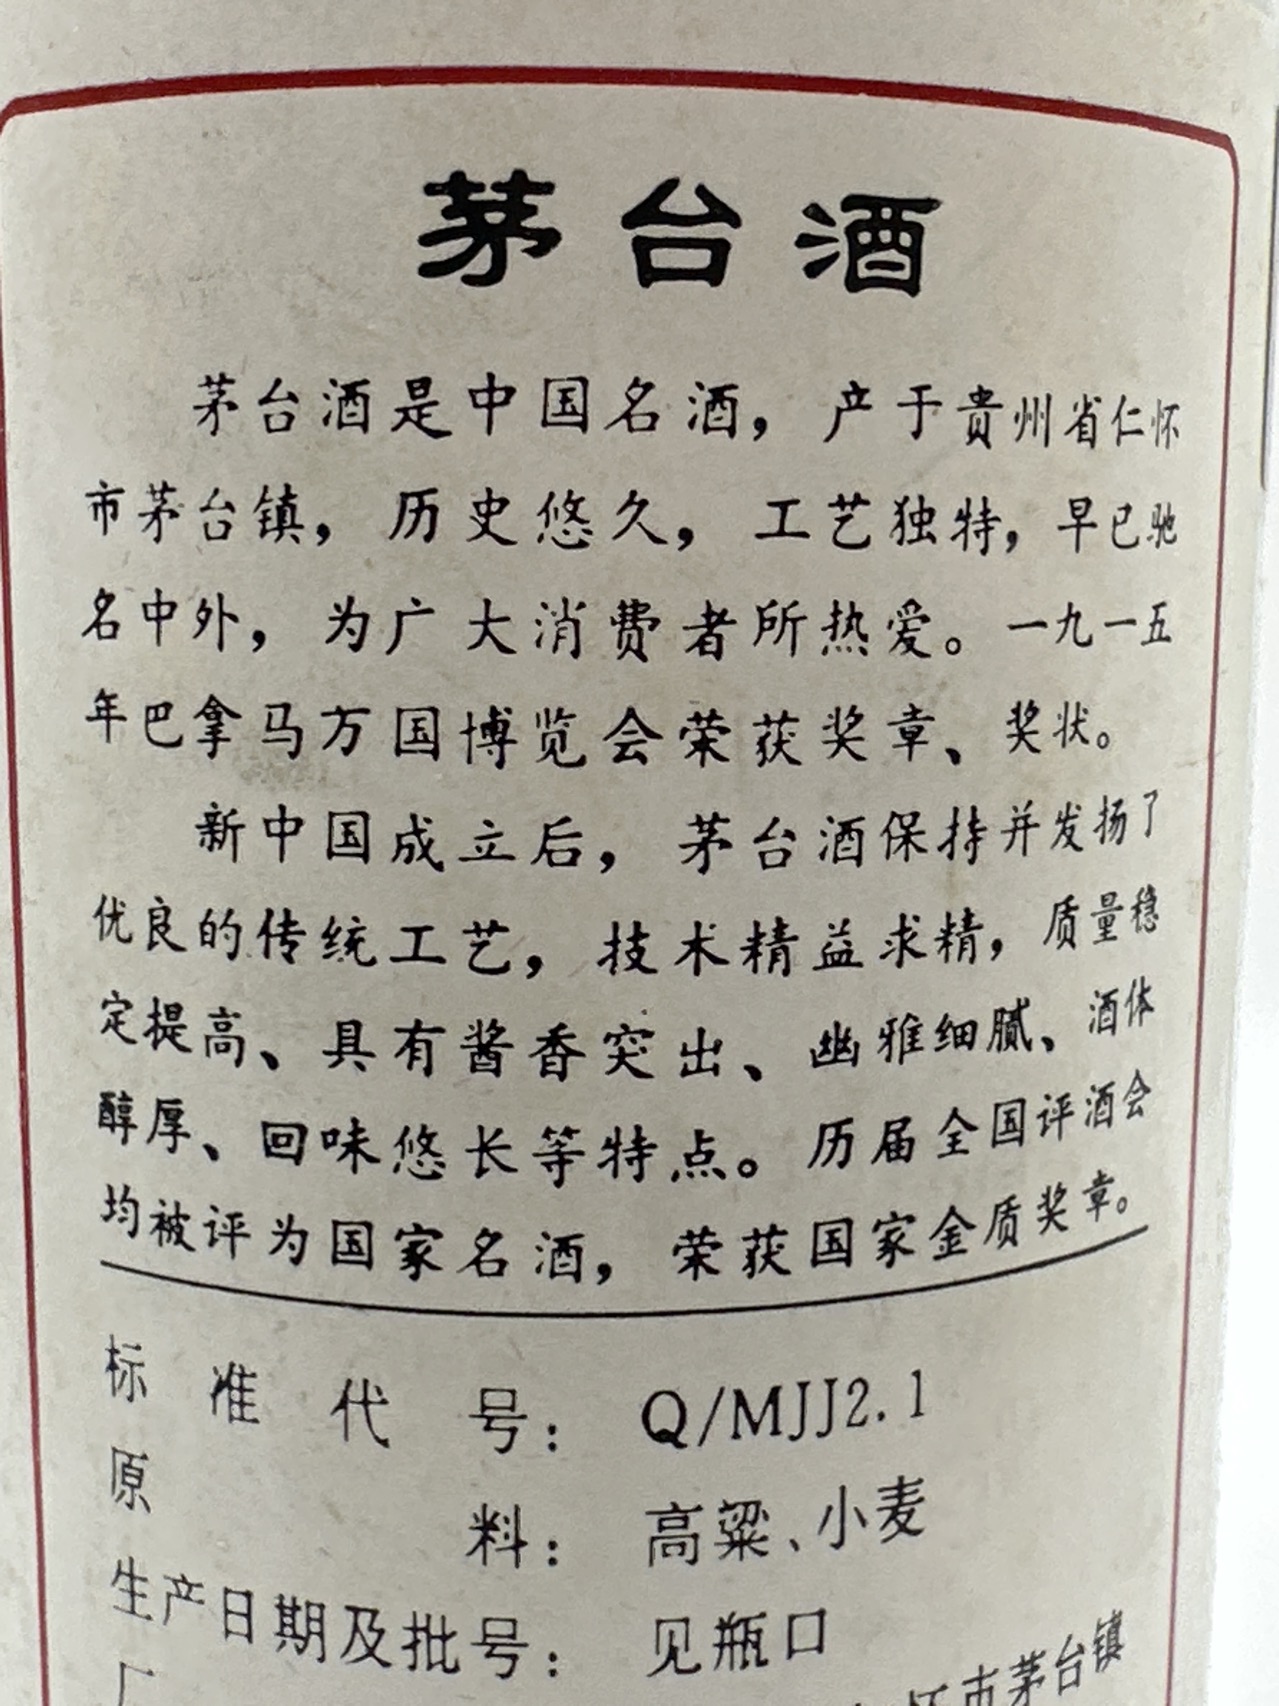 茅台酒
茅台酒是中国名酒，产于贵州省仁怀
市茅台镇，历史悠久，工艺独特，早已驰
名中外，为广大消费者所热爱。一九一五
年巴拿马万国博览会荣获奖章、奖状。
新中国成立后，茅台酒保持并发扬了
优良的传统工艺，技术精益求精，质量稳
定提高、具有酱香突出、幽雅细腻、酒体
醇厚、回味悠长等特点。历届全国评酒会
均被评为国家名酒，荣获国家金质奖章。
标准代号：Q/MJJ2.1
原料：高粱、小麦
生产日期及批号：见瓶口
厂 怀市茅台镇